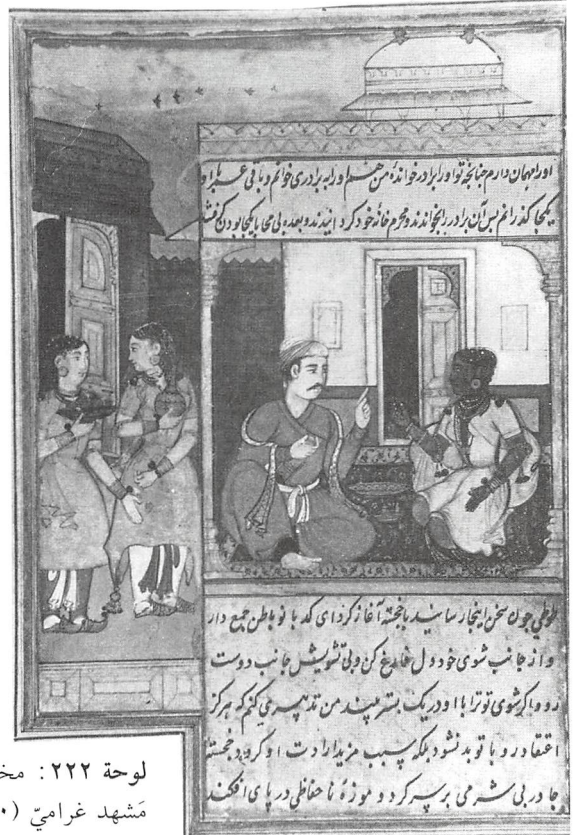 اورا مهمان دارم چنانچه تو اورا برادر خوانده من هم اورا به برادری خوانم و باقی عمر با او
یکجا گذرانم پس آن برادر را بخواندند و محرم خانهٔ خود کردانیدند و بعده بی محابا یکجا بودن
طوطی چون سخن اینجا رسانید با خجسته آغاز کرد ای کدبانو باطن جمع دار
و از جانب شوی خود دل فارغ کن و بی تشویش جانب دوست
رو و اکر شوی تو ترا با او در یک بستر بیند من تدبیر می کنم که هرکز
اعتقاد او با تو بد نشود بلکه سبب مزید ارادت او کردد خجسته
چادر بی شرمی بر سر کرد و موزهٔ نا حفاظی در پای افکند
لوحة ٢٢٢:
مَشهد غراميّ